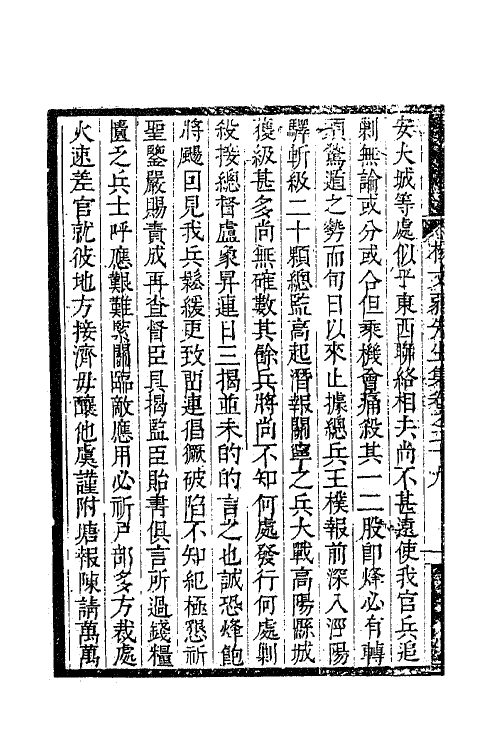 安大城等處似乎東西聯絡相去尚不甚遠使我官兵追
剿無論或分或合但乘機會痛殺其一二股卽烽必有轉
頭驚遁之勢而旬日以來止據總兵王樸報前深入涇陽
驛斬級二十顆總監高起潛報關寧之兵大戰高陽縣城
獲級甚多尚無確數其餘兵將尚不知何處發行何處剿
殺按總督盧象昇連日三揭並未的的言之也誠恐烽飽
將颺回見我兵鬆緩更致留連倡獗破陷不知紀極懇祈
聖鑒嚴賜責成再查督臣具揭監臣貽書俱言所過錢糧
匱乏兵士呼應艱難緊關臨敵應用必祈戸部多方裁處
火速差官就彼地方接濟毋釀他虞謹附塘報陳請萬萬
楊文弱先生集卷之二十九